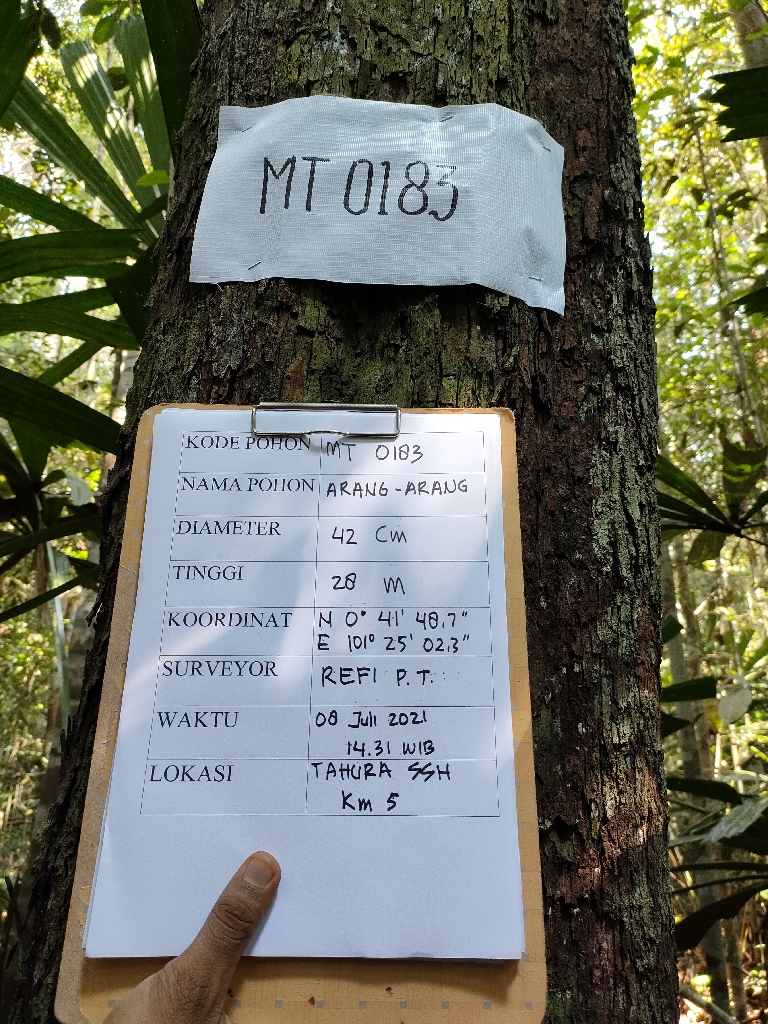 MT 0183
KODE POHON MT 0183
NAMA POHON ARANG-ARANG
DIAMETER 42 Cm
TINGGI 28 M
KOORDINAT N 0° 41' 48.7"
E 101° 25' 02.3"
SURVEYOR REFI P.T.
WAKTU 08 Juli 2021
14.31 WIB
LOKASI TAHURA SSH
Km 5